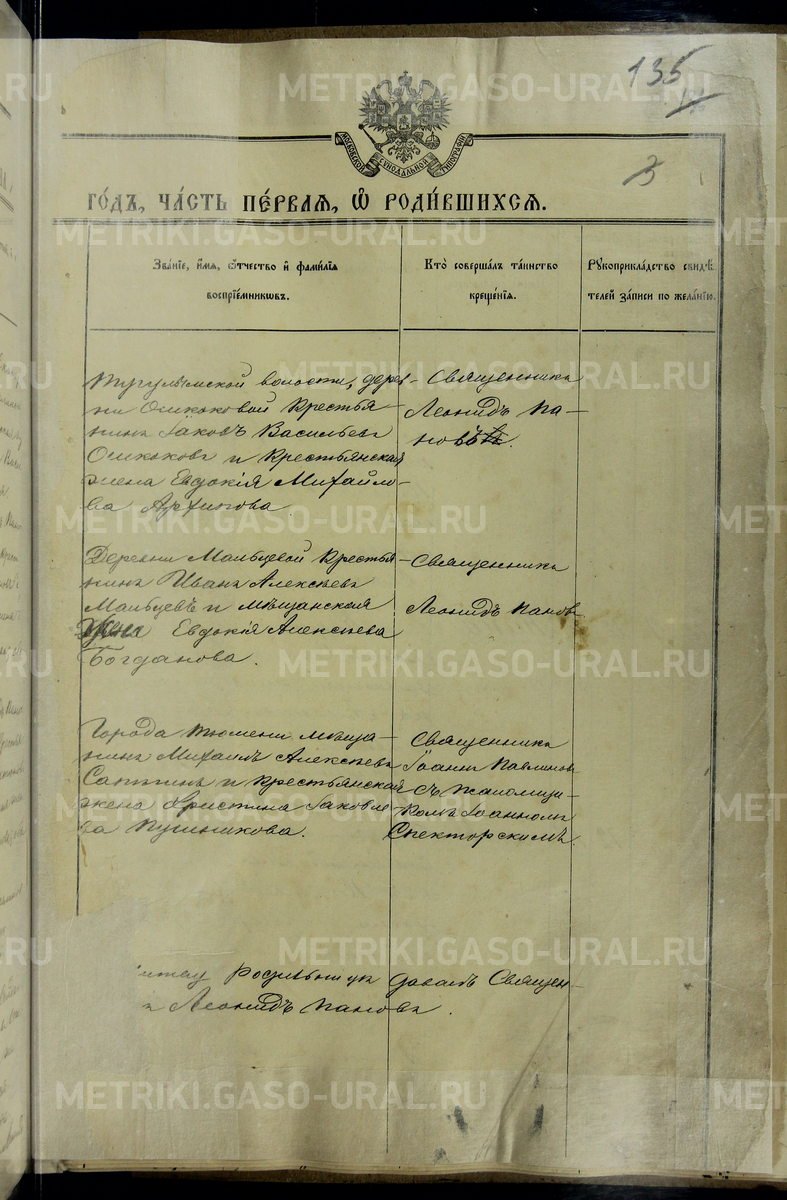 135
МОСКОВСКОЙ СУНОДАЛЬНОЙ ТИПОГРАФІИ
3
ГО́ДЪ, ЧА́СТЬ ПЕ́РВАЯ, Ѡ҆ РОДИ́ВШИХСЯ.
Зва́нїе, и҆́мя, ѻ҆́тчество и҆ фами́лїя
воспрїе́мникѡвъ.
Кто̀ соверша́лъ та́инство
креще́нїя.
Рꙋкоприкла́дство свидѣ́-
телей за́писи по жела́нїю.
Тугулымской волости, дерев-
ни Ошкоковой крестья-
нинъ Іаковъ Васильевъ
Ошкоковъ и крестьянская
жена Евдокія Михайло-
ва Архипова
Священникъ
Леонидъ Па-
новъ.
Деревни Мальцевой крестья-
нинъ Иванъ Алексѣевъ
Мальцевъ и мѣщанская
жена Евдокія Алексѣева
Богданова.
Священникъ
Леонидъ Пановъ
Города Тюмени мѣща-
нинъ Михаилъ Алексѣевъ
Саптинъ и крестьянская
жена Христина Іаковле-
ва Пушникова.
Священникъ
Іоаннъ Павлиновъ
съ псаломщи-
комъ Іоанномъ
Спекторскимъ.
родившихъ давалъ Священ-
Леонидъ Пановъ.
METRIKI.GASO-URAL.RU